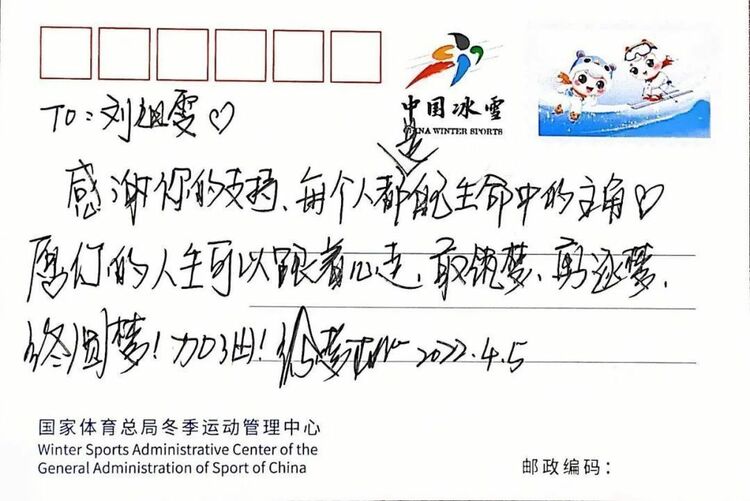 中国冰雪
CHINA WINTER SPORTS
TO：刘祖雯♡
是
感谢你的支持、每个人都自己生命中的主角♡
愿你的人生可以跟着心走，敢筑梦、勇逐梦，
终圆梦！加油！徐梦桃 2022.4.5
国家体育总局冬季运动管理中心
Winter Sports Administrative Center of the
General Administration of Sport of China
邮政编码：